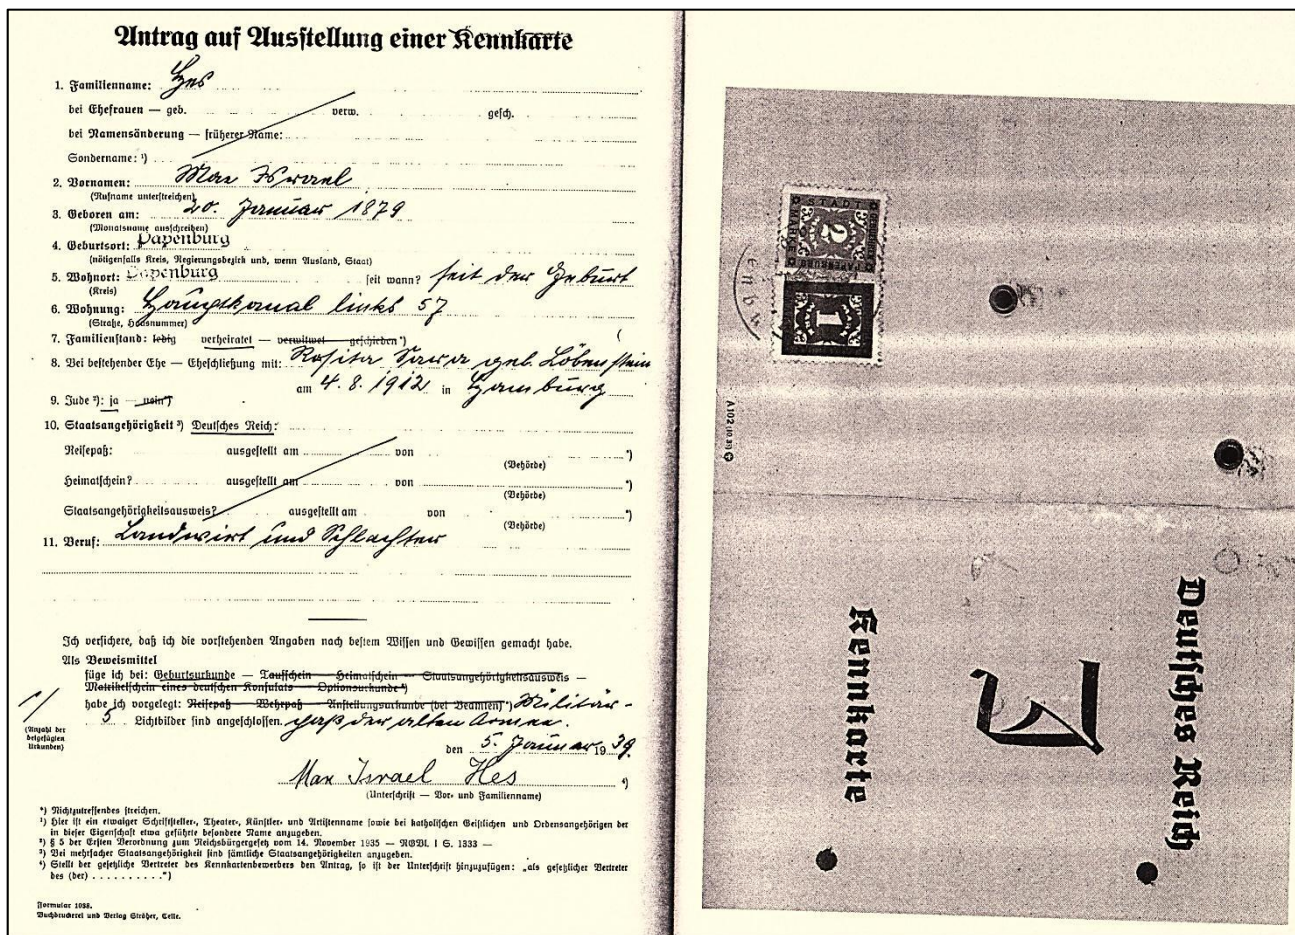 Antrag auf Ausstellung einer Kennkarte
1. Familienname: Hes
bei Ehefrauen — geb. verw. gesch.
bei Namensänderung — früherer Name:
Sondername: ¹)
2. Vornamen: Max Israel
(Rufname unterstreichen)
3. Geboren am: 20. Januar 1879
(Monatsname ausschreiben)
4. Geburtsort: Papenburg
(nötigenfalls Kreis, Regierungsbezirk und, wenn Ausland, Staat)
5. Wohnort: Papenburg seit wann? seit der Geburt
(Kreis)
6. Wohnung: Hauptkanal links 57
(Straße, Hausnummer)
7. Familienstand: ledig verheiratet — verwitwet — geschieden *)
8. Bei bestehender Ehe — Eheschließung mit: Rosita Sara geb. Löbenstein
am 4. 8. 1912 in Hamburg
9. Jude ²): ja — nein *)
10. Staatsangehörigkeit ³) Deutsches Reich:
Reisepaß: ausgestellt am von *)
(Behörde)
Heimatschein? ausgestellt am von *)
(Behörde)
Staatsangehörigkeitsausweis? ausgestellt am von *)
(Behörde)
11. Beruf: Landwirt und Schlachter
Ich versichere, daß ich die vorstehenden Angaben nach bestem Wissen und Gewissen gemacht habe.
Als Beweismittel
füge ich bei: Geburtsurkunde — Taufschein — Heimatschein — Staatsangehörigkeitsausweis —
Matrikelschein eines deutschen Konsulats — Optionsurkunde *)
habe ich vorgelegt: Reisepaß — Wehrpaß — Anstellungsurkunde (bei Beamten) *) Militär-
5 Lichtbilder sind angeschlossen. paß der alten Armee.
(Anzahl der
beigefügten
Urkunden)
den 5. Januar 1939
Max Israel Hes ⁴)
(Unterschrift — Vor- und Familienname)
*) Nichtzutreffendes streichen.
¹) Hier ist ein etwaiger Schriftsteller-, Theater-, Künstler- und Artistenname sowie bei katholischen Geistlichen und Ordensangehörigen der
in dieser Eigenschaft etwa geführte besondere Name anzugeben.
²) § 5 der Ersten Verordnung zum Reichsbürgergesetz vom 14. November 1935 — RGBl. I S. 1333 —
³) Bei mehrfacher Staatsangehörigkeit sind sämtliche Staatsangehörigkeiten anzugeben.
⁴) Stellt der gesetzliche Vertreter des Kennkartenbewerbers den Antrag, so ist der Unterschrift hinzuzufügen: „als gesetzlicher Vertreter
des (der) . . . . . . . . . .“)
Formular 1088.
Buchdruckerei und Verlag Ströher, Celle.
STADT
2
MARKE
PAPENBURG
1
Deutsches Reich
J
Kennkarte